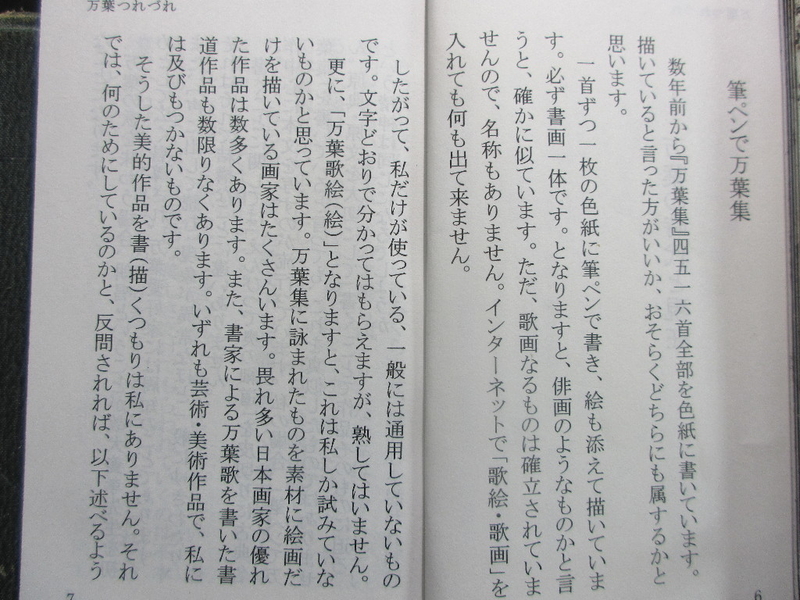 筆ペンで万葉集
数年前から『万葉集』四五一六首全部を色紙に書いています。
描いていると言った方がいいか、おそらくどちらにも属するかと
思います。
一首ずつ一枚の色紙に筆ペンで書き、絵も添えて描いていま
す。必ず書画一体です。となりますと、俳画のようなものかと言
うと、確かに似ています。ただ、歌画なるものは確立されていま
せんので、名称もありません。インターネットで「歌絵・歌画」を
入れても何も出て来ません。
6
万葉つれづれ
したがって、私だけが使っている、一般には通用していないもの
です。文字どおりで分かってはもらえますが、熟してはいません。
更に、「万葉歌絵(絵)」となりますと、これは私しか試みていな
いものかと思っています。万葉集に詠まれたものを素材に絵画だ
けを描いている画家はたくさんいます。畏れ多い日本画家の優れ
た作品は数多くあります。また、書家による万葉歌を書いた書
道作品も数限りなくあります。いずれも芸術・美術作品で、私に
は及びもつかないものです。
そうした美的作品を書(描)くつもりは私にありません。それ
では、何のためにしているのかと、反問されれば、以下述べるよう
7